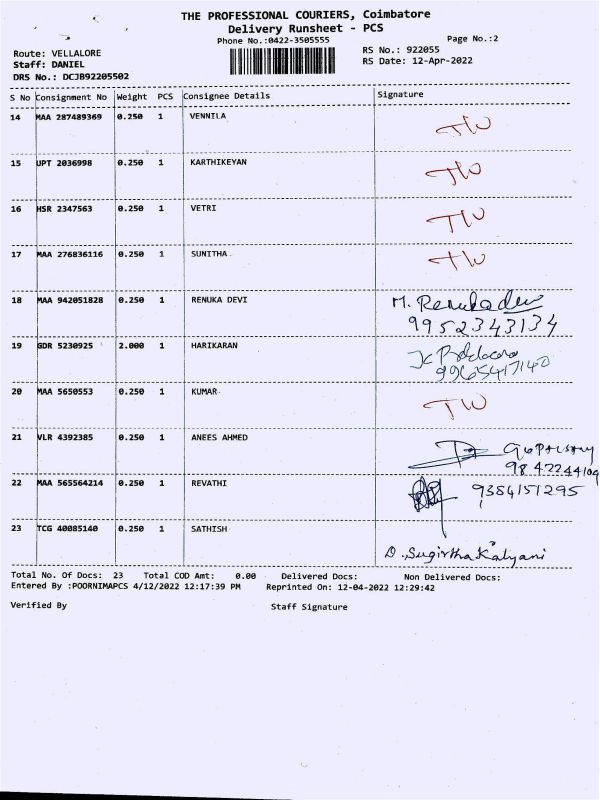 THE PROFESSIONAL COURIERS, Coimbatore
Delivery Runsheet - PCS
Phone No.:0422-3505555
Page No.:2
Route: VELLALORE
RS No.: 922055
Staff: DANIEL
RS Date: 12-Apr-2022
DRS No.: DCJB92205502
S No Consignment No Weight PCS Consignee Details Signature
14 MAA 287489369 0.250 1 VENNILA
15 UPT 2036998 0.250 1 KARTHIKEYAN
16 HSR 2347563 0.250 1 VETRI
17 MAA 276836116 0.250 1 SUNITHA
18 MAA 942051828 0.250 1 RENUKA DEVI M. Renukadevi
9952343134
19 GDR 5230925 2.000 1 HARIKARAN
9965417140
20 MAA 5650553 0.250 1 KUMAR
21 VLR 4392385 0.250 1 ANEES AHMED
9842244104
22 MAA 565564214 0.250 1 REVATHI 9384151295
23 TCG 40085140 0.250 1 SATHISH
D. Sugirtha Kalyani
Total No. Of Docs: 23 Total COD Amt: 0.00 Delivered Docs: Non Delivered Docs:
Entered By :POORNIMAPCS 4/12/2022 12:17:39 PM Reprinted On: 12-04-2022 12:29:42
Verified By Staff Signature